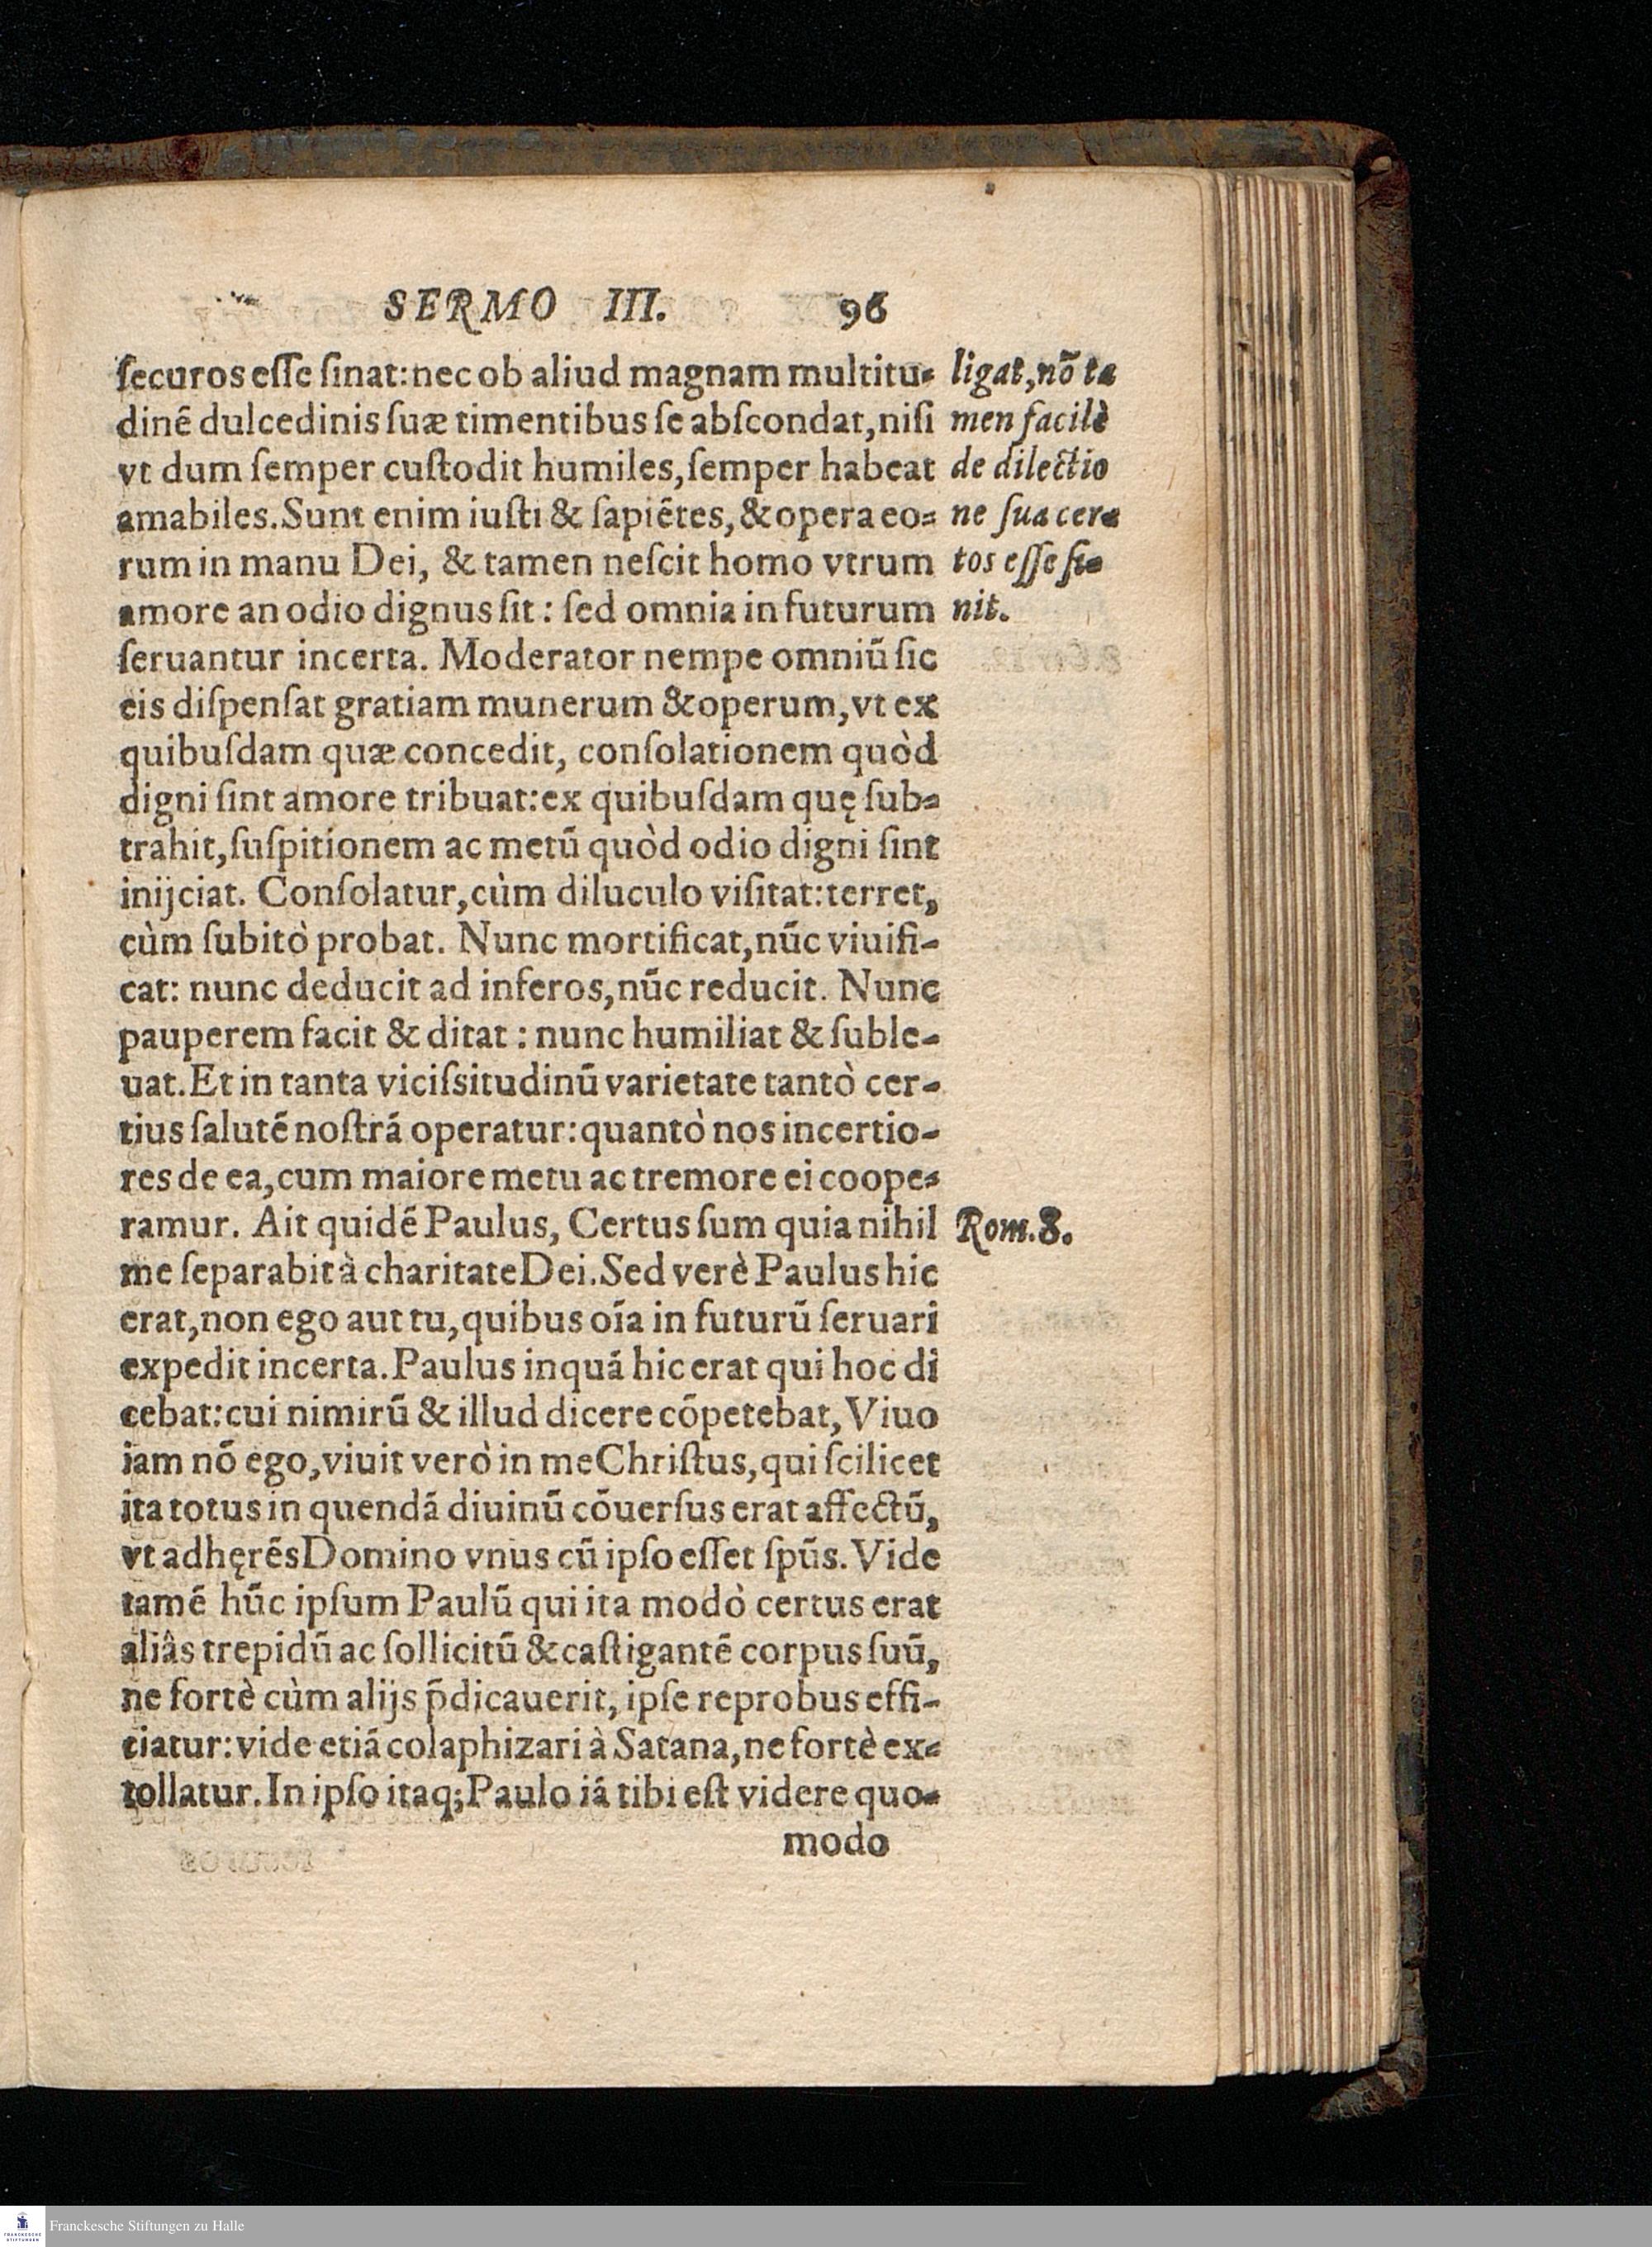 SERMO III. 96
ſecuros eſſe ſinat: nec ob aliud magnam multitu-
dinē dulcedinis ſuæ timentibus ſe abſcondat, niſi
vt dum ſemper cuſtodit humiles, ſemper habeat
amabiles. Sunt enim iuſti & ſapiētes, & opera eo-
rum in manu Dei, & tamen neſcit homo vtrum
amore an odio dignus ſit: ſed omnia in futurum
ſeruantur incerta. Moderator nempe omniū ſic
eis diſpenſat gratiam munerum & operum, vt ex
quibuſdam quæ concedit, conſolationem quòd
digni ſint amore tribuat: ex quibuſdam quę ſub-
trahit, ſuſpitionem ac metū quòd odio digni ſint
inijciat. Conſolatur, cùm diluculo viſitat: terret,
cùm ſubitò probat. Nunc mortificat, nūc viuifi-
cat: nunc deducit ad inferos, nūc reducit. Nunc
pauperem facit & ditat: nunc humiliat & ſuble-
uat. Et in tanta viciſsitudinū varietate tantò cer-
tius ſalutē noſtrā operatur: quantò nos incertio-
res de ea, cum maiore metu ac tremore ei coope-
ramur. Ait quidē Paulus, Certus ſum quia nihil
me ſeparabit à charitate Dei. Sed verè Paulus hic
erat, non ego aut tu, quibus oīa in futurū ſeruari
expedit incerta. Paulus inquā hic erat qui hoc di
cebat: cui nimirū & illud dicere cōpetebat, Viuo
iam nō ego, viuit verò in me Chriſtus, qui ſcilicet
ita totus in quendā diuinū cōuerſus erat affectū,
vt adhęrēs Domino vnus cū ipſo eſſet ſpūs. Vide
tamē hūc ipſum Paulū qui ita modò certus erat
aliâs trepidū ac ſollicitū & caſtigantē corpus ſuū,
ne fortè cùm alijs p̄dicauerit, ipſe reprobus effi-
ciatur: vide etiā colaphizari à Satana, ne fortè ex-
tollatur. In ipſo itaq; Paulo iā tibi eſt videre quo-
modo
ligat, nō ta
men facilè
de dilectio
ne ſua cer-
tos eſſe ſi-
nit.
Rom. 8.
Franckesche Stiftungen zu Halle
FRANCKESCHE
STIFTUNGEN